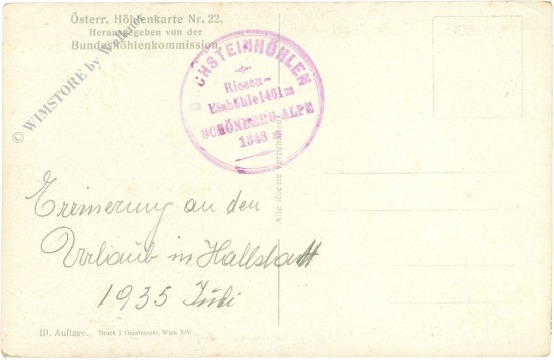 Österr. Höhlenkarte Nr. 22.
Herausgegeben von der
Bundeshöhlenkommission.
© WIMSTORE by Wallau
DACHSTEINHÖHLEN
Riesen-
Eishöhle 1461m
SCHÖNBERG-ALPE
1348 m
Alle Rechte vorbehalten
Erinnerung an den
Urlaub in Hallstatt
1935 Juli
III. Auflage. Druck J. Gerstmayer, Wien XIV